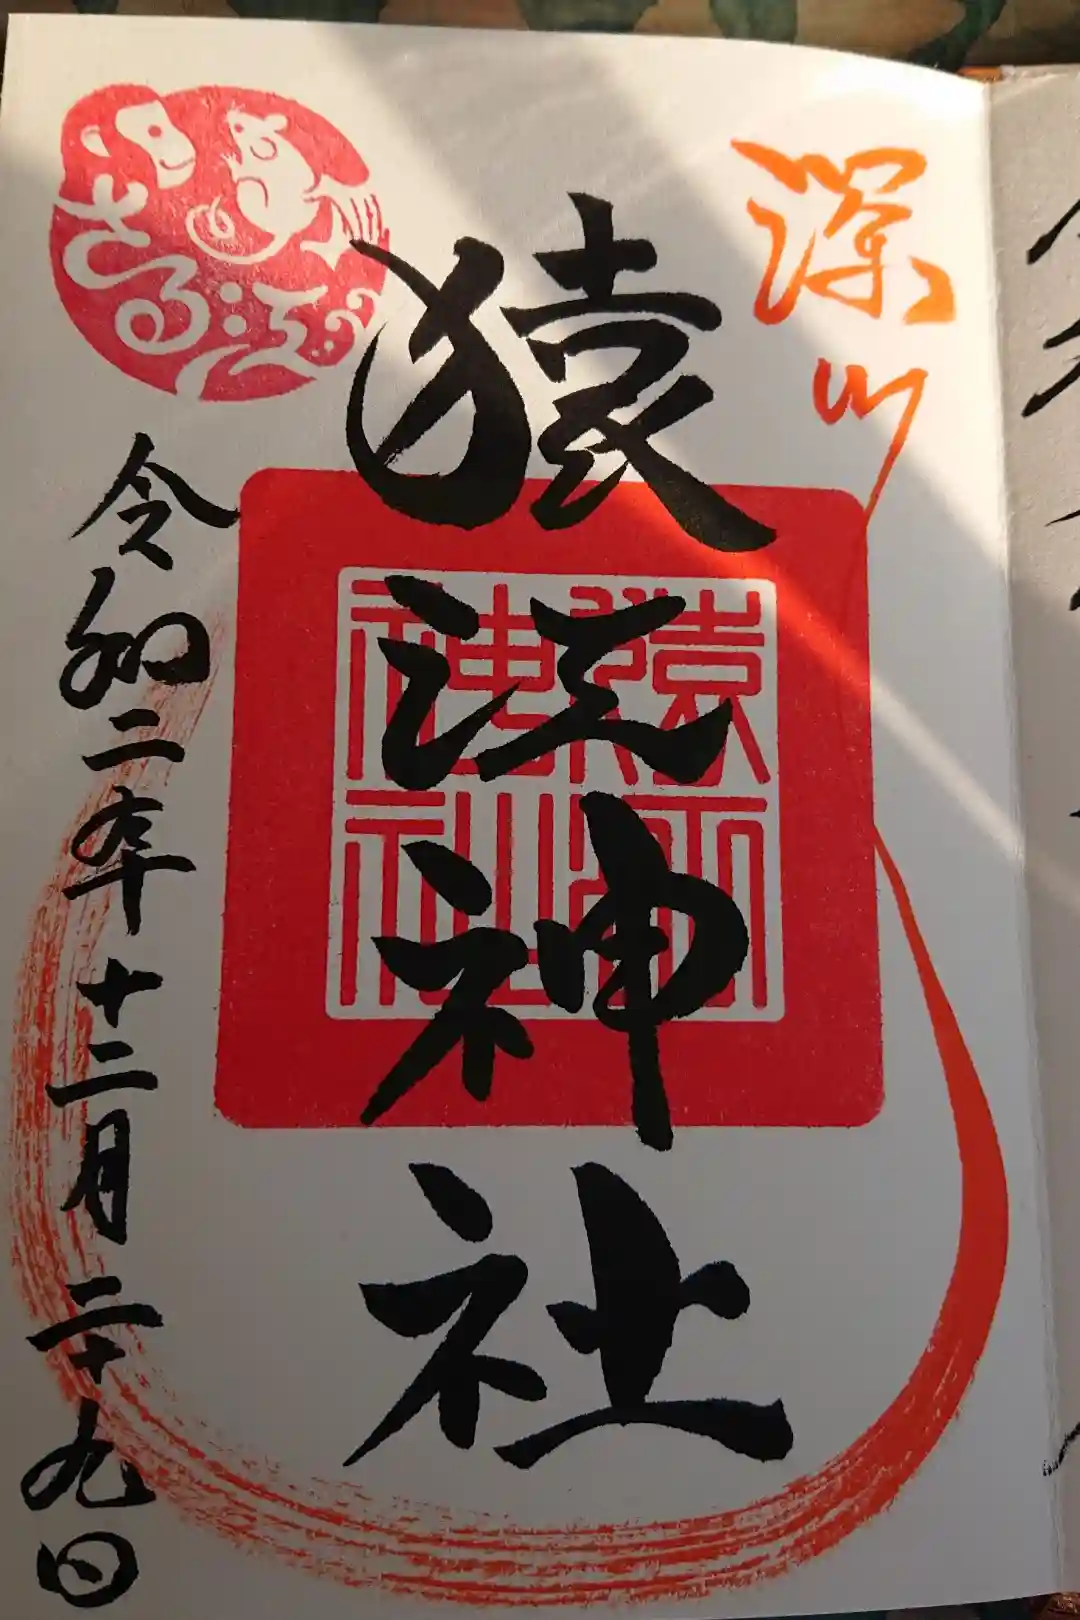 深川
猿江神社
猿江神社
さる江
令和二年十二月二十九日